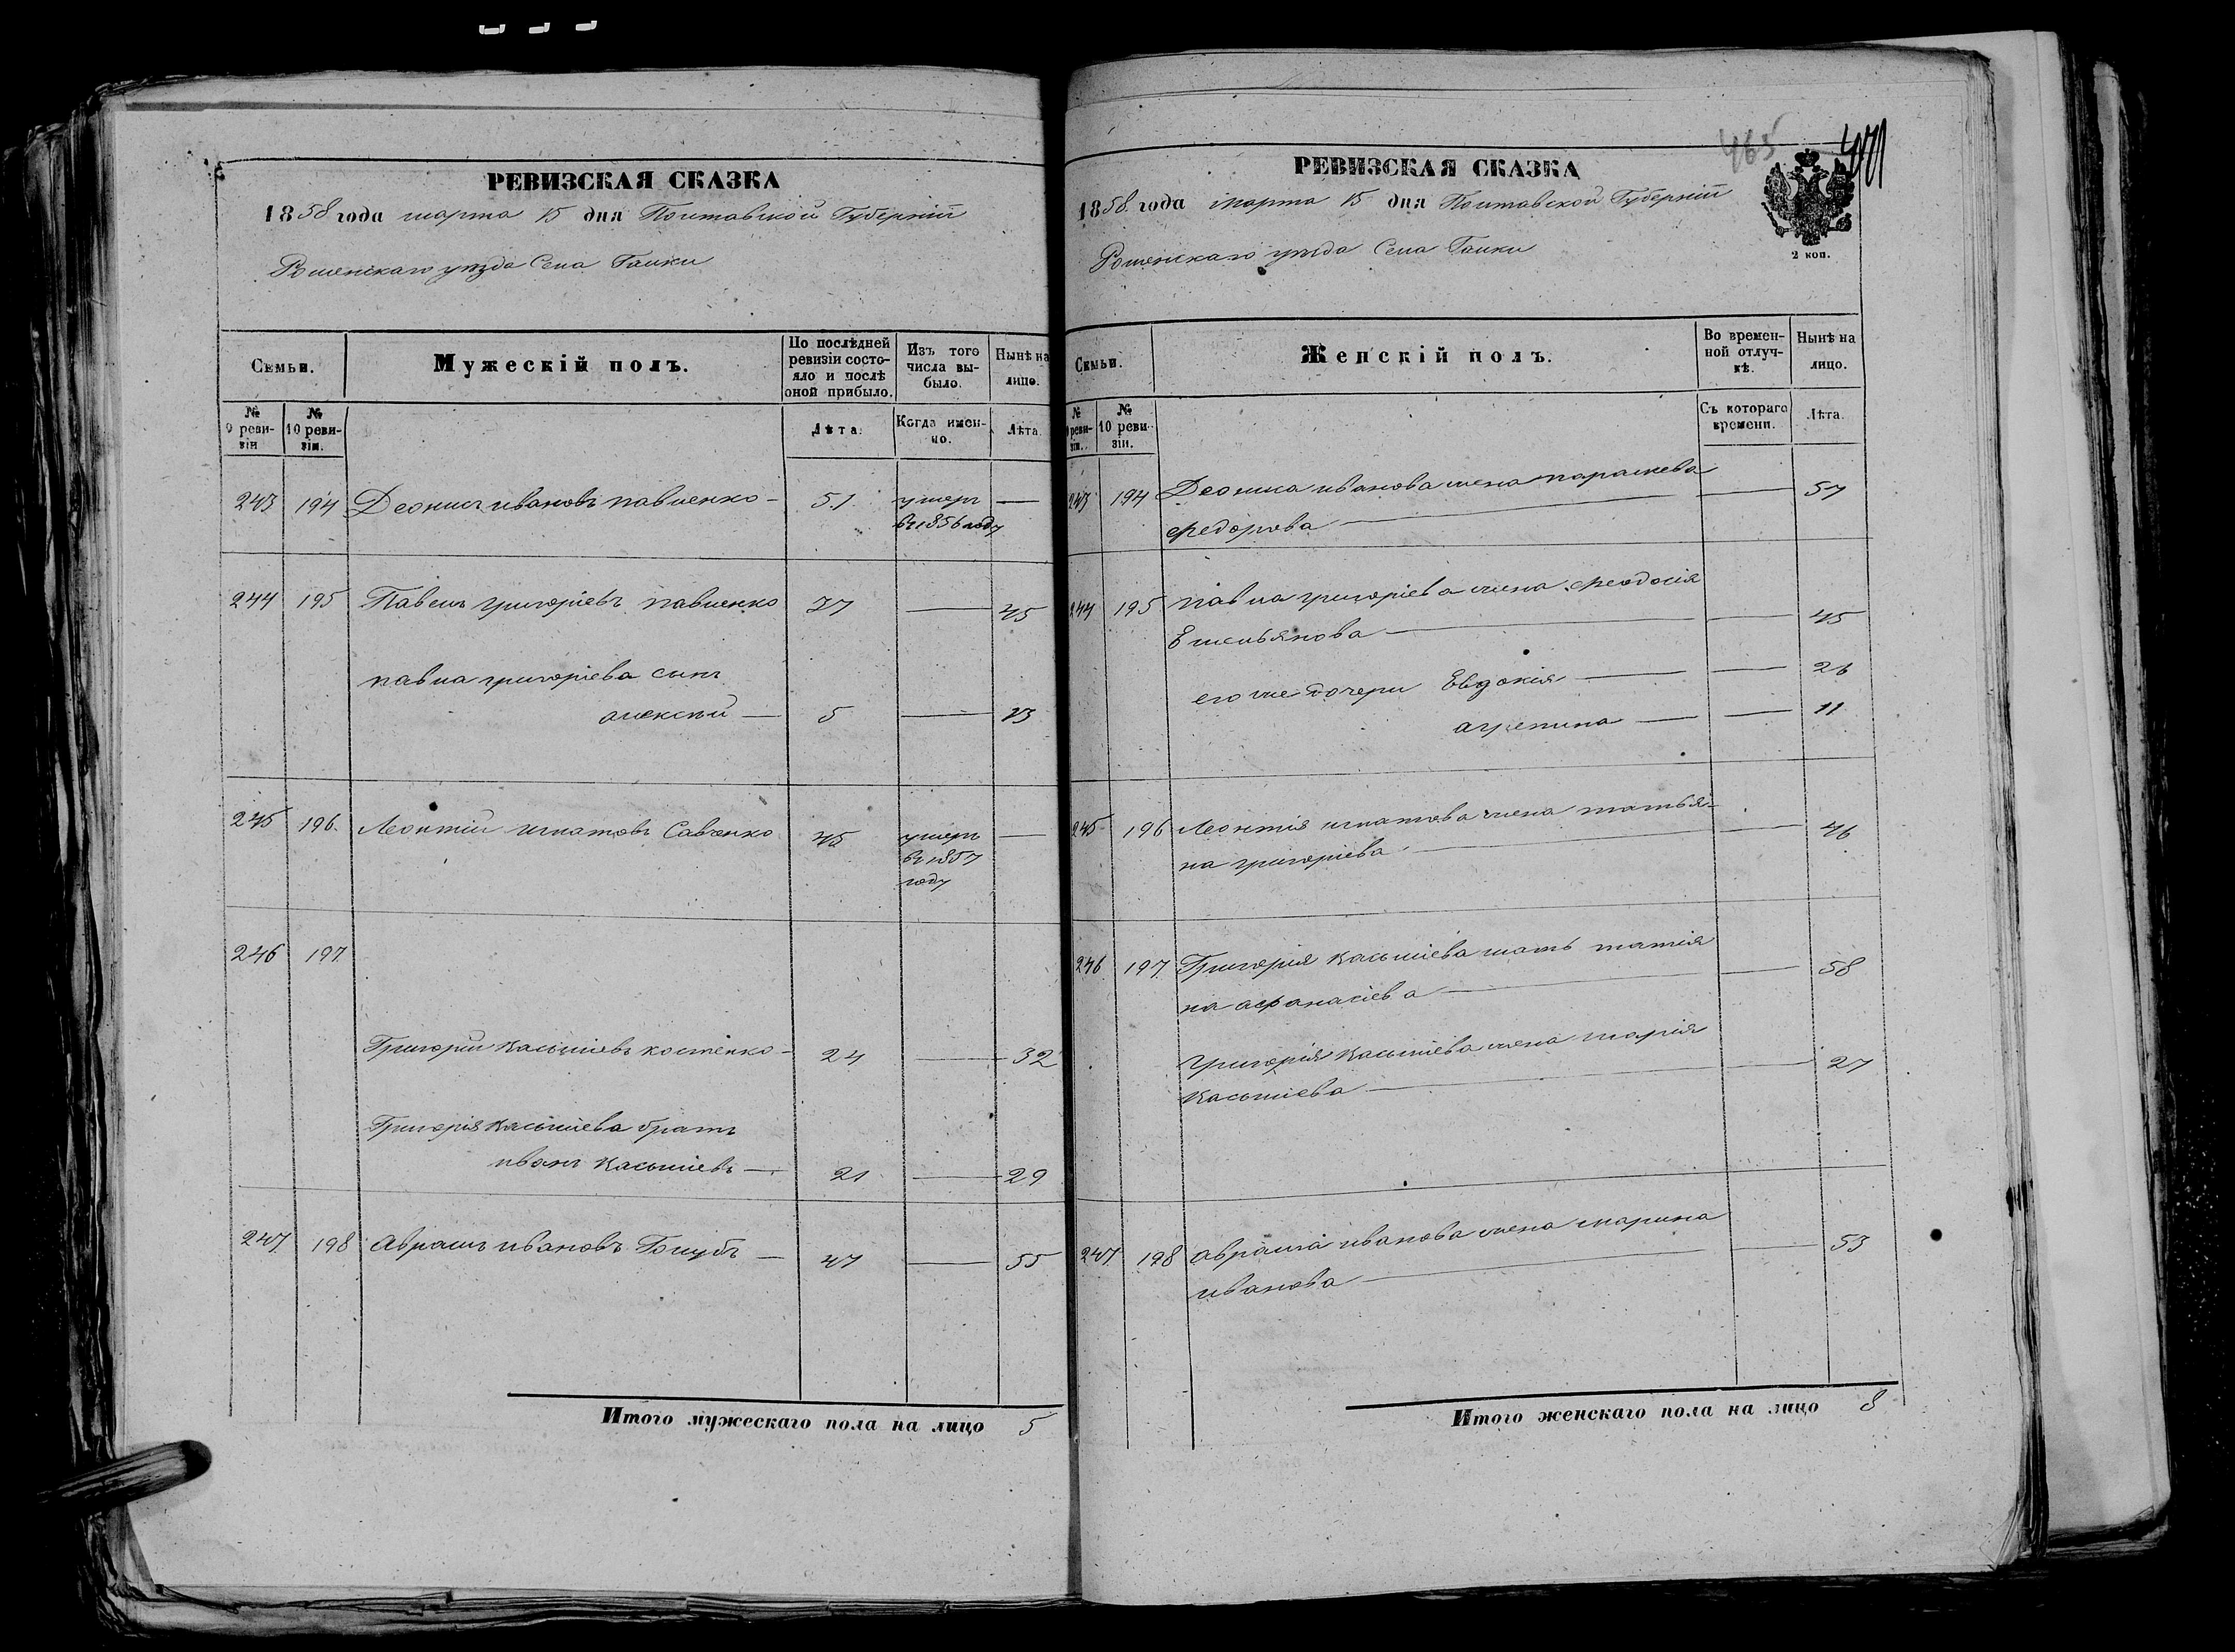 РЕВИЗСКАЯ СКАЗКА
1858 года марта 15 дня Полтавской Губерніи
Роменскаго уѣзда Села Галки
Семьи. Мужескій полъ. По послѣдней ревизіи состояло и послѣ оной прибыло. Изъ того числа выбыло. Нынѣ на лицо.
№ 9 ревизіи № 10 ревизіи. Лѣта. Когда именно. Лѣта.
243 194 Леонтій ивановъ павленко 51 умеръ
въ 1856 году
244 195 Павелъ григоріевъ павленко 37 45
павла григоріева сынъ
алексѣй 5 13
245 196 Леонтій игнатовъ Савченко 45 умеръ
въ 1857
году
246 197
Григорій касьяновъ костенко 24 32
Григорія касьянова братъ
иванъ касьяновъ 21 29
247 198 Аврамъ ивановъ Голубъ 47 55
Итого мужескаго пола на лицо 5
465 471
РЕВИЗСКАЯ СКАЗКА
1858 года марта 15 дня Полтавской Губерніи
Роменскаго уѣзда Села Галки
2 коп.
Семьи. Женскій полъ. Во временной отлучкѣ. Нынѣ на лицо.
№ 9 ревизіи. № 10 ревизіи. Съ котораго времени. Лѣта.
243 194 иванова жена параскева 57
федорова
244 195 павла григоріева жена феодосія
Емельянова 45
его же дочери Евдокія 26
агрепина 11
245 196 Леонтія игнатова жена татья-
на григоріева 46
246 197 Григорія мать татія
на афанасіева 58
григорія жена марія 27
247 198 аврама иванова жена марина 53
иванова
Итого женскаго пола на лицо 8